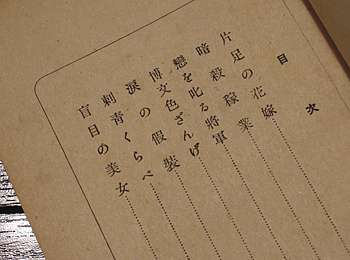 目次
片足の花嫁
暗殺稼業
戀を叱る將軍
博文色ざんげ
涙の假裝
刺青くらべ
盲目の美女